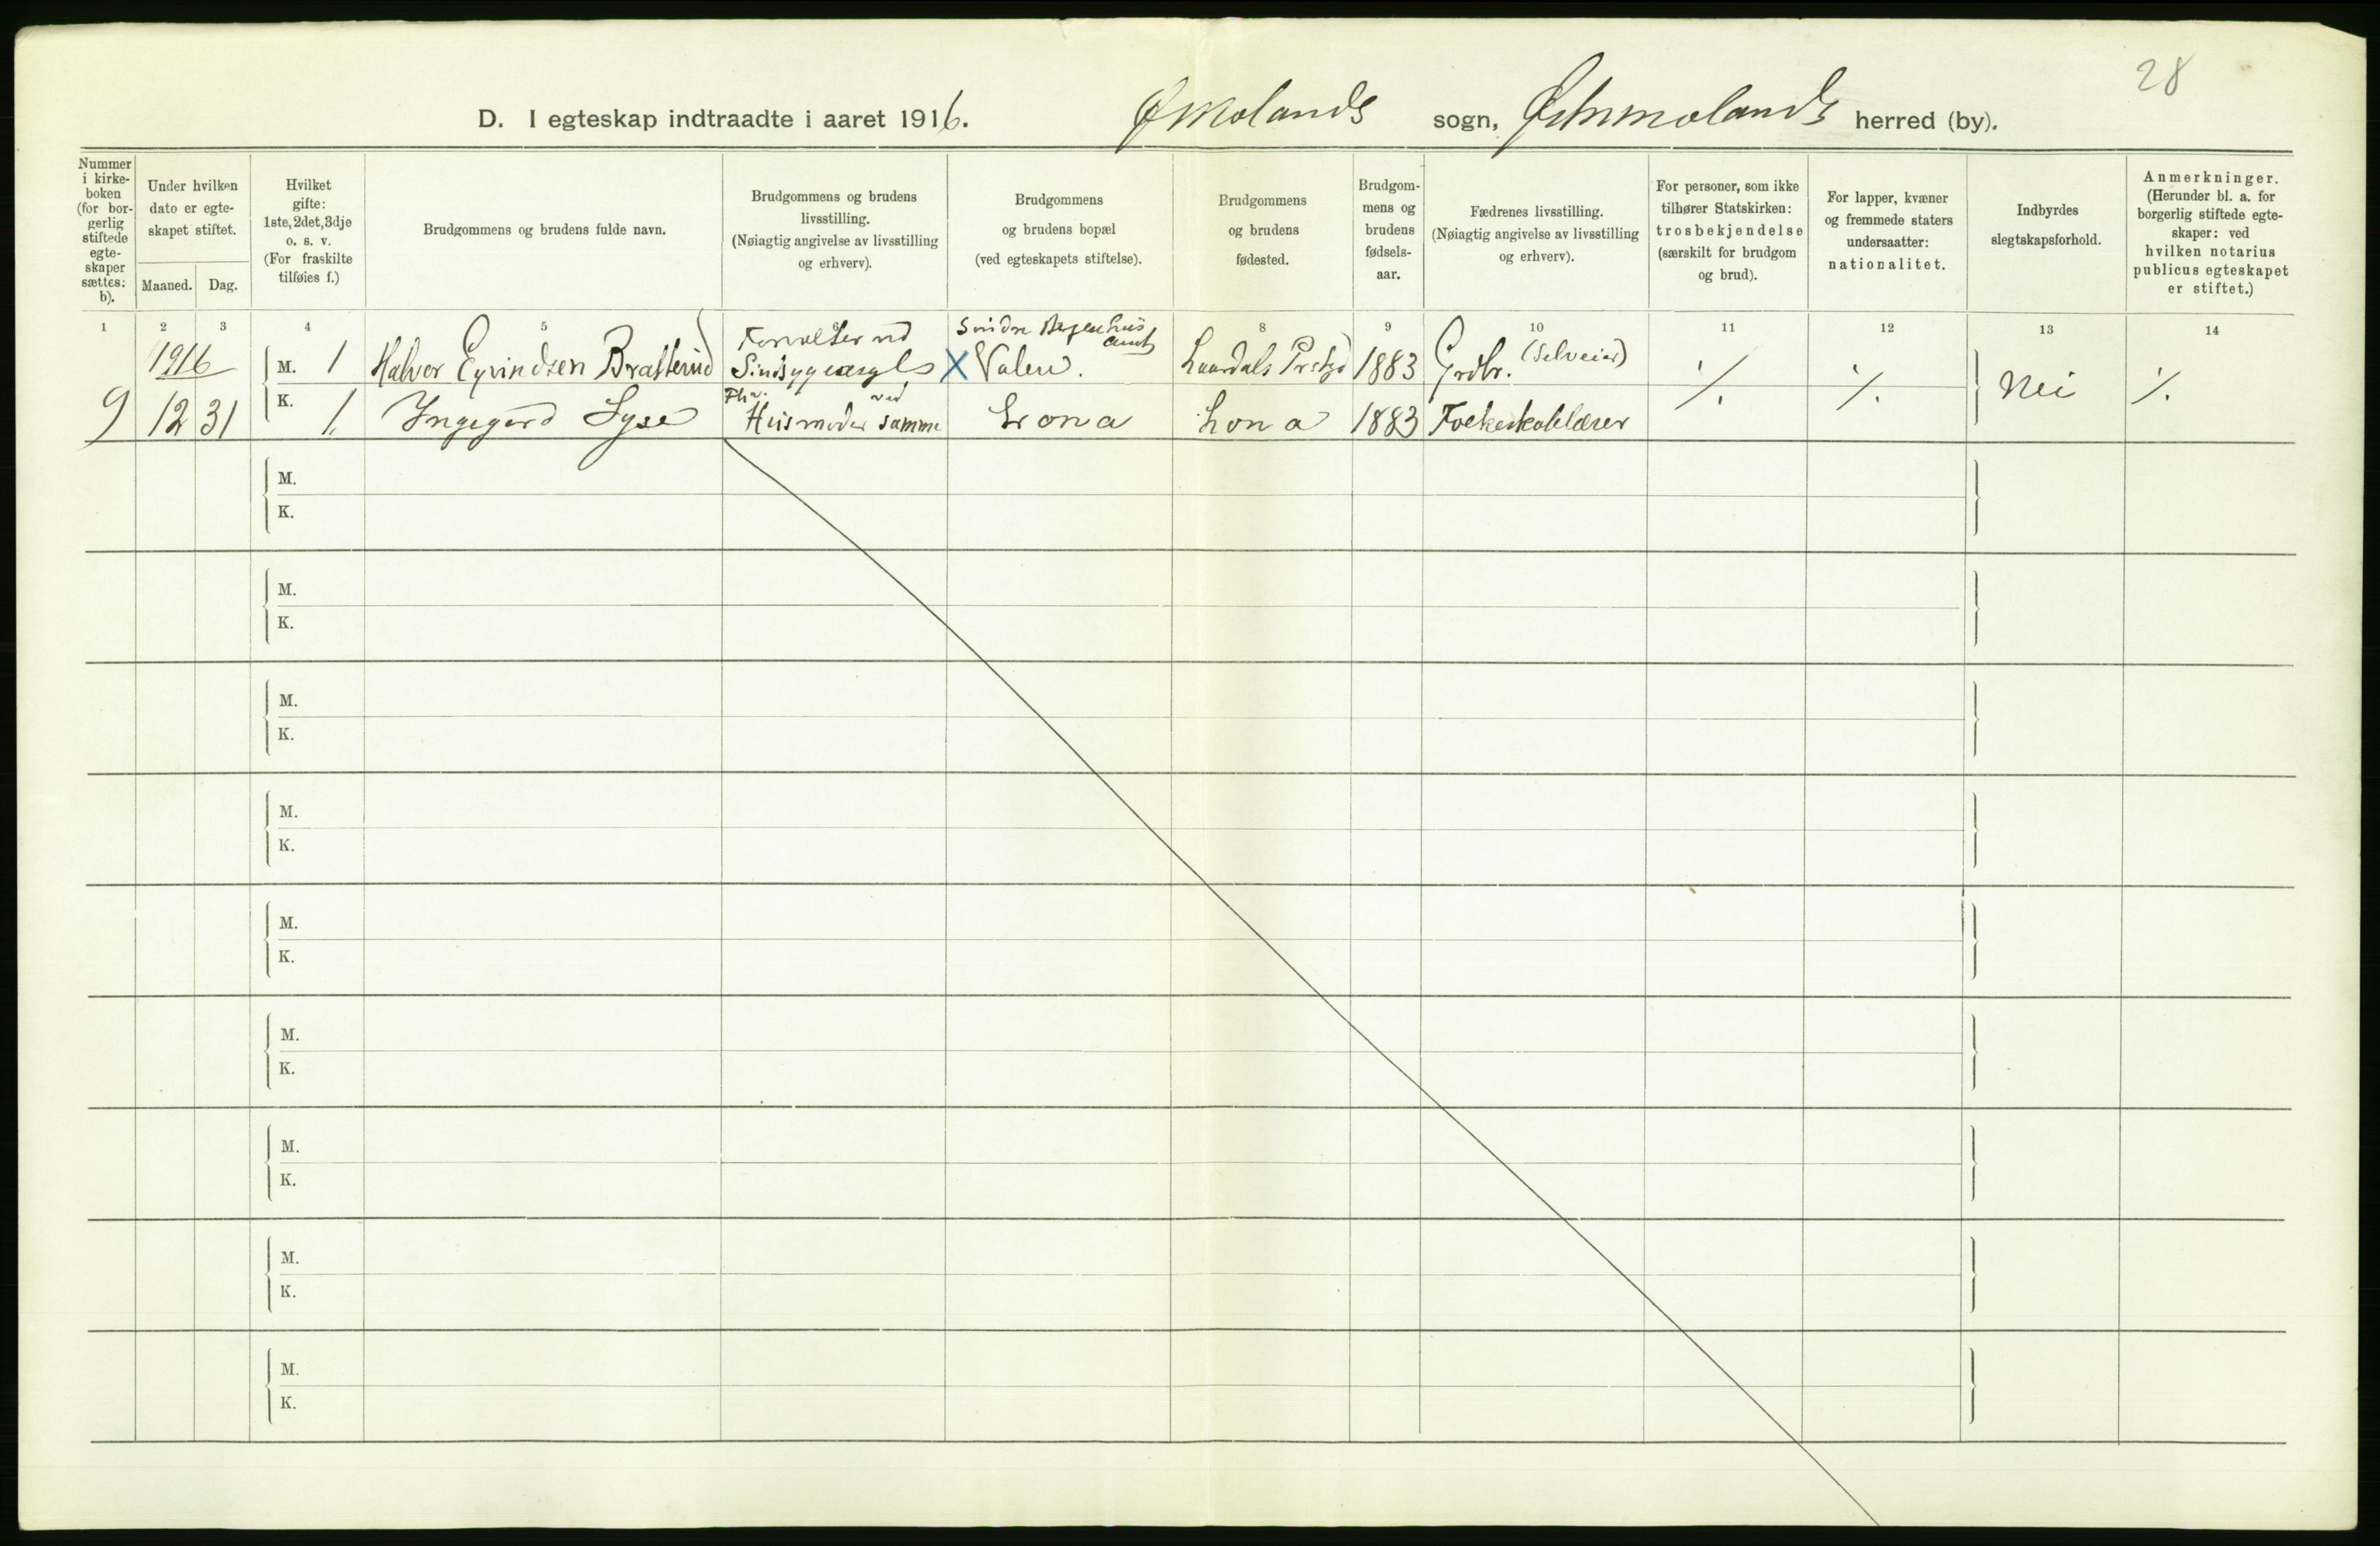 28
D. I egteskap indtraadte i aaret 1916. Ømolands sogn, Østremolands herred (by).
Nummer i kirke-boken (for bor-gerlig stiftede egte-skaper sættes: b).
Under hvilken dato er egte-skapet stiftet.
Maaned. Dag.
Hvilket gifte: 1ste, 2det, 3dje o. s. v. (For fraskilte tilføies f.)
Brudgommens og brudens fulde navn.
Brudgommens og brudens livsstilling. (Nøiagtig angivelse av livsstilling og erhverv).
Brudgommens og brudens bopæl (ved egteskapets stiftelse).
Brudgommens og brudens fødested.
Brudgom-mens og brudens fødsels-aar.
Fædrenes livsstilling. (Nøiagtig angivelse av livsstilling og erhverv).
For personer, som ikke tilhører Statskirken: trosbekjendelse (særskilt for brudgom og brud).
For lapper, kvæner og fremmede staters undersaatter: nationalitet.
Indbyrdes slegtskapsforhold.
Anmerkninger. (Herunder bl. a. for borgerlig stiftede egte-skaper: ved hvilken notarius publicus egteskapet er stiftet.)
1 2 3 4 5 6 8 9 10 11 12 13 14
1916 M. 1 Halvor Eyvindsen Bratterud Forvalter ved Sindsygeasyls Søndre Bergenhus amt X Valen. Laardals Prstgj 1883 Grdbr. (Selveier) ./. ./. Nei ./.
9 12 31 K. 1. Ingegerd Lyse Fhv. Husmoder ved samme Lona 1883 Folkeskolelærer
M.
K.
M.
K.
M.
K.
M.
K.
M.
K.
M.
K.
M.
K.
M.
K.
M.
K.